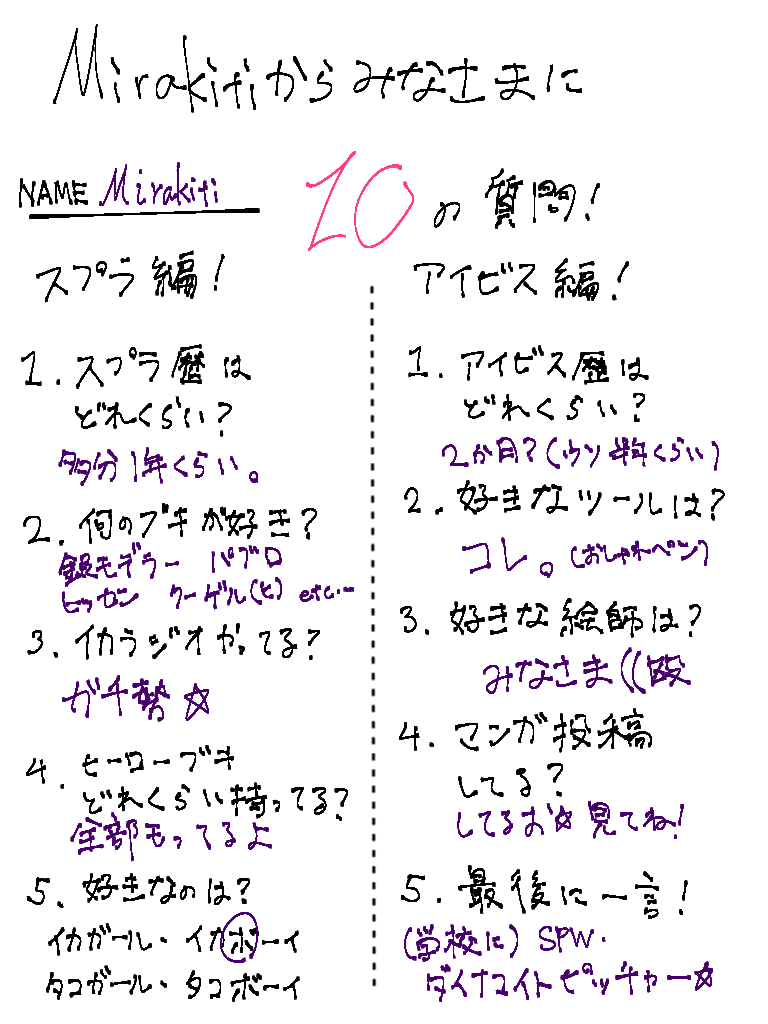 Mirakitiからみなさまに
NAME Mirakiti
10の質問!
スプラ編!
1. スプラ歴は
どれくらい?
多分1年くらい。
2. 何のブキが好き?
銀モデラー パブロ
ヒッセン クーゲル(ヒ) etc…
3. イカラジオガってる?
ガチ勢☆
4. ヒーローブキ
どれくらい持ってる?
全部もってるよ
5. 好きなのは?
イカガール・イカボーイ
タコガール・タコボーイ
アイビス編!
1. アイビス歴は
どれくらい?
2か月?(ウソ 半年くらい)
2. 好きなツールは?
コレ。(おしゃれペン)
3. 好きな絵師は?
みなさま((殴
4. マンガ投稿
してる?
してるお☆見てね!
5. 最後に一言!
(学校に) SPW.
ダイナマイトピッチャー☆